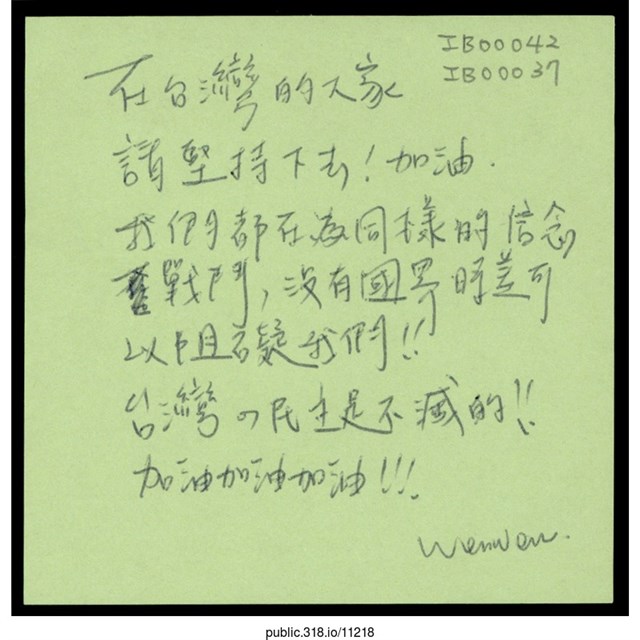 IB00042
IB00037
在台灣的大家
請堅持下去！加油.
我們都在為同樣的信念
奮戰鬥，沒有國界時差可
以阻礙我們！！
台灣の民主是不滅的！！
加油加油加油！！！
WenWen.
public.318.io/11218